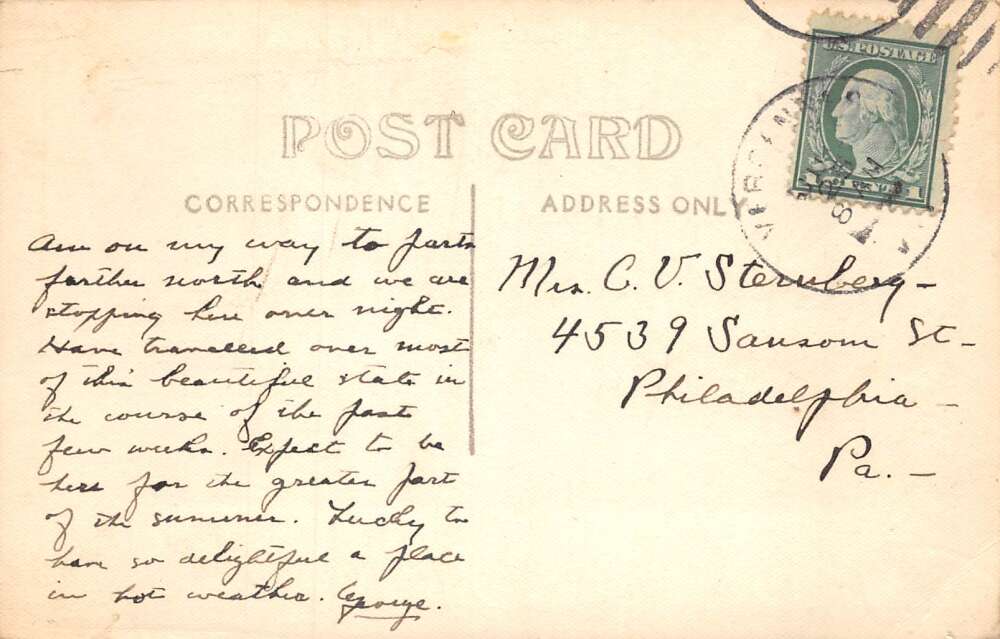 POST CARD
CORRESPONDENCE
ADDRESS ONLY
U.S. POSTAGE
1 1
VIRGINIA
Am on my way to parts
farther north and we are
stopping here over night.
Have travelled over most
of this beautiful state in
the course of the past
few weeks. Expect to be
here for the greater part
of the summer. Lucky to
have so delightful a place
in hot weather. George.
Mrs. C. V. Sternberg -
4539 Sansom St -
Philadelphia -
Pa. -